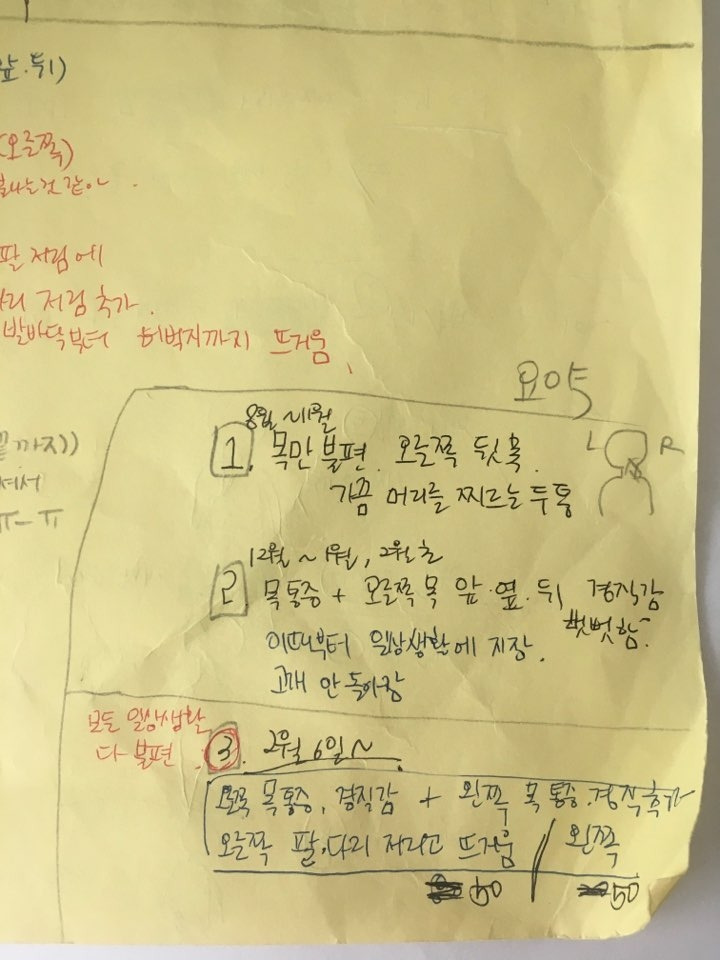 앞·뒤)
(오른쪽)
나는것 같아.
팔 저림에
다리 저림 추가.
발바닥부터 허벅지까지 뜨거움.
끝까지))
ㅠ-ㅠ
요약
8월~11월
1. 목만 불편. 오른쪽 뒷목.
L R
가끔 머리를 찌르는 두통
12월 ~ 1월, 2월초
2. 목통증 + 오른쪽 목 앞·옆·뒤, 경직감
뻣뻣함.
이때부터 일상생활에 지장.
고개 안 돌아감
모든 일상생활
다 불편
3. 2월 6일~
목통증, 경직감 + 왼쪽 목통증·경직추가
오른쪽 팔·다리 저리고 뜨거움 / 왼쪽
50